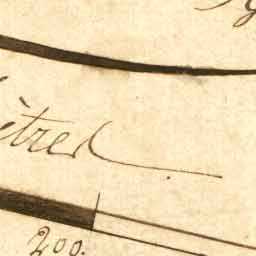 ètres
200.